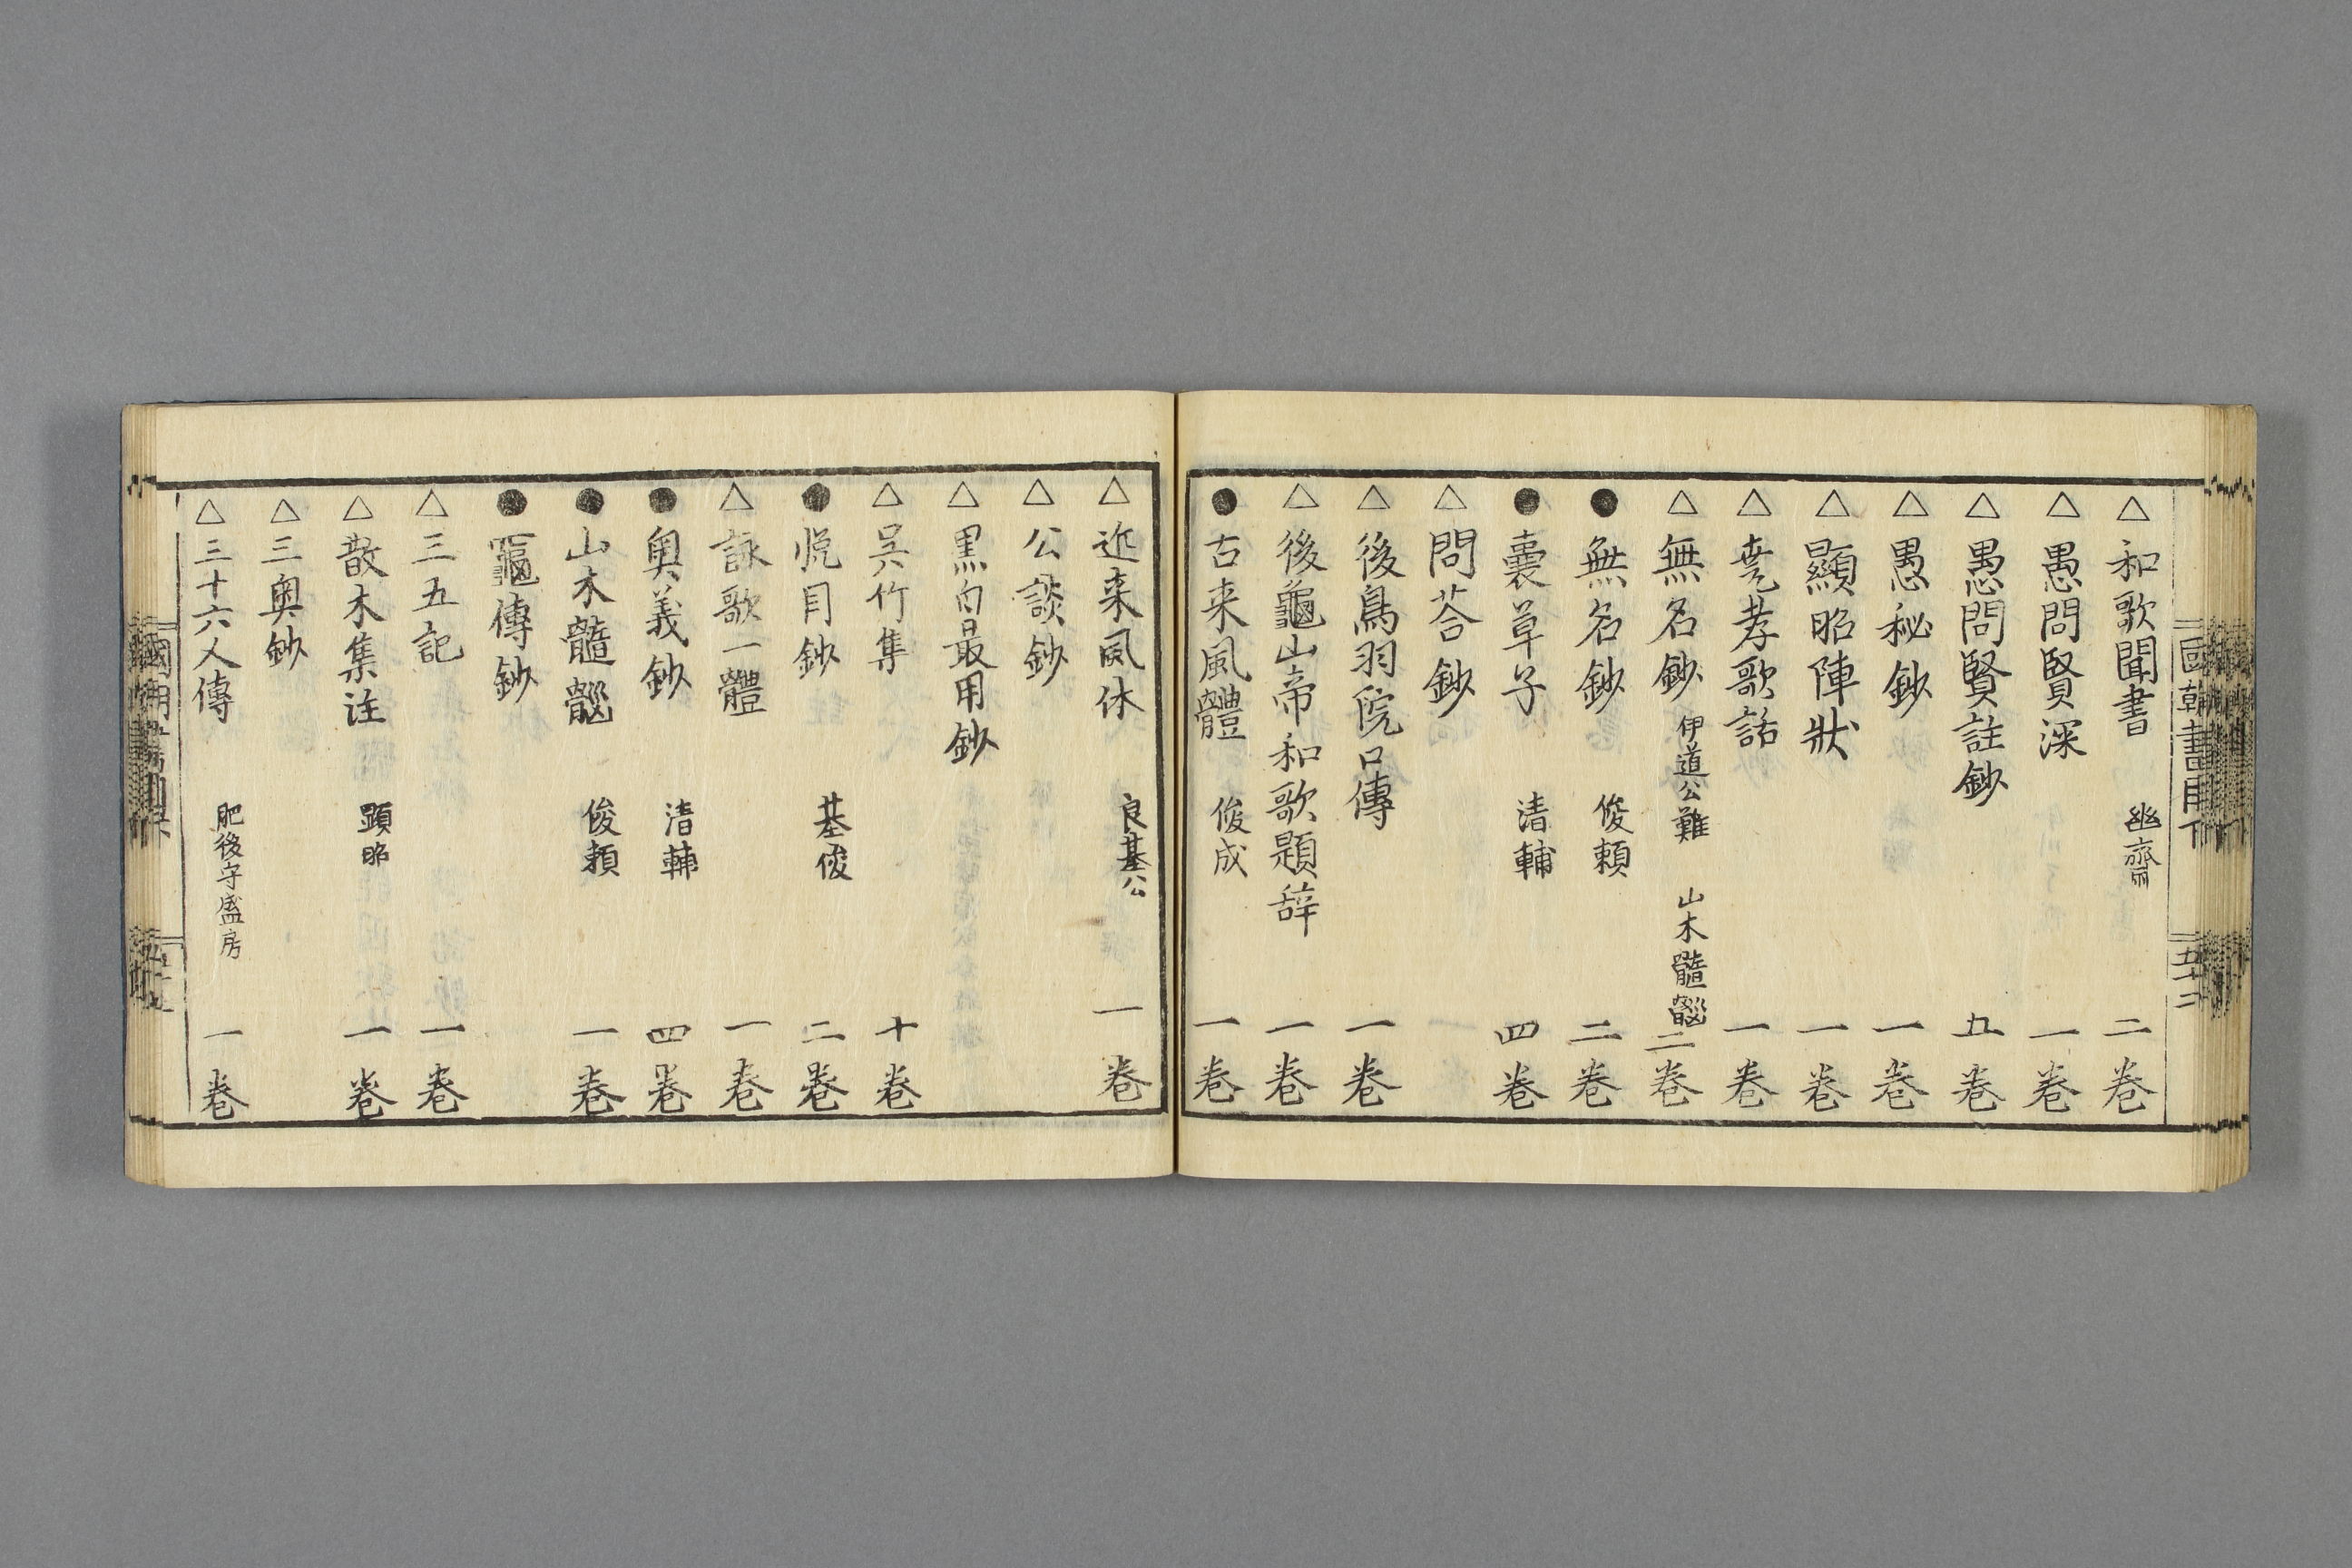 國朝書目下
五十二
△和歌聞書 幽齋 二巻
△愚問賢深 一巻
△愚問賢註鈔 五巻
△愚秘鈔 一巻
△顯昭陣狀 一巻
△堯孝歌話 一巻
△無名鈔 伊道公難 山木髓腦 二巻
●無名鈔 俊頼 二巻
●囊草子 清輔 四巻
△問荅鈔
△後鳥羽院口傳 一巻
△後龜山帝和歌題辞 一巻
●古来風體 俊成 一巻
△近来風体 良基公 一巻
△公談鈔
△黒白最用鈔
△呉竹集 十巻
●悦目鈔 基俊 二巻
△詠歌一體 一巻
●奥義鈔 清輔 四巻
●山木髓腦 俊頼 一巻
●龜傳鈔
△三五記 一巻
△散木集注 顕昭 一巻
△三奥鈔
△三十六人傳 肥後守盛房 一巻